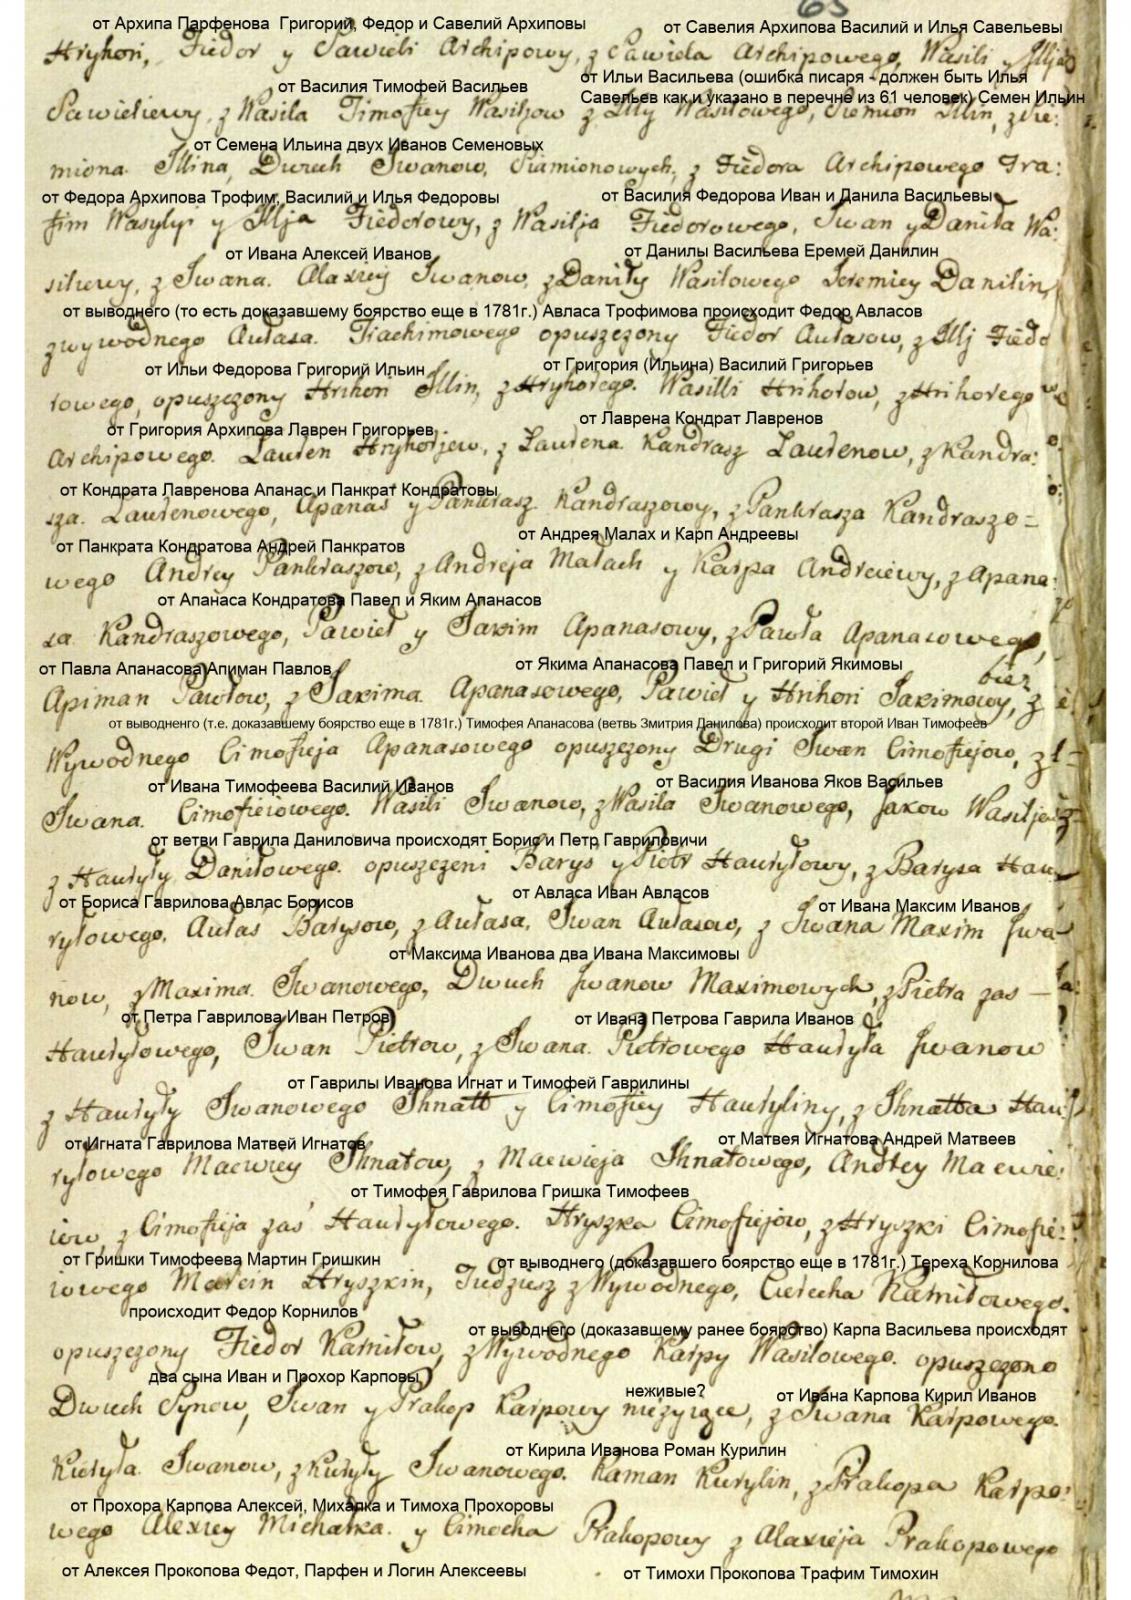 63
от Архипа Парфенова Григорий, Федор и Савелий Архиповы
от Савелия Архипова Василий и Илья Савельевы
Hryhori, Fiedor y Sawieli Archipowy, z Sawiela Archipowego, Wasili y Illja
от Василия Тимофей Васильев
от Ильи Васильева (ошибка писаря - должен быть Илья
Савельев как и указано в перечне из 61 человек) Семен Ильин
Sawieliewy, z Wasila Timofiey Wasiljow z Illy Wasilowego, Siemion Illin, z Sie:
от Семена Ильина двух Иванов Семеновых
miona Illina, Dwuch Iwanow, Siamionowych, z Fiedora Archipowego Tra:
от Федора Архипова Трофим, Василий и Илья Федоровы
от Василия Федорова Иван и Данила Васильевы
fim Wasylyi y Illja Fiedorowy, z Wasilja Fiedorowego, Iwan y Daniła Wa:
от Ивана Алексей Иванов
от Данилы Васильева Еремей Данилин
silewy, z Iwana Alaxiey Iwanow, z Daniły Wasilowego Jeremiey Danilin,
от выводнего (то есть доказавшему боярство еще в 1781г.) Авласа Трофимова происходит Федор Авласов
z wywodnego Aułasa Trachimowego opuszczony Fiedor Aułasow, z Illj Fiedo
от Ильи Федорова Григорий Ильин
от Григория (Ильина) Василий Григорьев
rowego, opuszczony Hrihori Illin, z Hryhorego Wasilli Hrihorow, z Hrihorego
от Григория Архипова Лаврен Григорьев
от Лаврена Кондрат Лавренов
Archipowego Lauren Hryhorjew, z Laurena Kandrasz Laurenow, z Kandra:
от Кондрата Лавренова Апанас и Панкрат Кондратовы
sza Laurenowego, Apanas y Pankrasz Kandraszowy, z Pankrasza Kandraszo=
от Панкрата Кондратова Андрей Панкратов
от Андрея Малах и Карп Андреевы
wego Andrey Pankraszow, z Andreja Małach y Karpa Andreiewy, z Apana:
от Апанаса Кондратова Павел и Яким Апанасов
sa Kandraszowego, Pawieł y Jakim Apanasowy, z Pawła Apanasowego,
от Павла Апанасова Апиман Павлов
от Якима Апанасова Павел и Григорий Якимовы
Apiman Pawłow, z Jaxima Apanasowego, Pawieł y Hrihori Jaximowy, z
от выводненго (т.е. доказавшему боярство еще в 1781г.) Тимофея Апанасова (ветвь Змитрия Данилова) происходит второй Иван Тимофеев
Wywodnego Cimofieja Apanasowego opuszczony Drugi Iwan Cimofiejow, z
от Ивана Тимофеева Василий Иванов
от Василия Иванова Яков Васильев
Iwana Cimofieiowego Wasili Iwanow, z Wasila Iwanowego, Jakow Wasiljew
от ветви Гаврила Даниловича происходят Борис и Петр Гавриловичи
z Hauryły Daniłowego opuszczeni Barys y Piotr Hauryłowy, z Barysa Hau
от Бориса Гаврилова Авлас Борисов
от Авласа Иван Авласов
от Ивана Максим Иванов
ryłowego, Aułas Barysow, z Aułasa, Iwan Aułasow, z Iwana Maxim Iwa
от Максима Иванова два Ивана Максимовы
now, z Maxima Iwanowego, Dwuch Iwanow Maximowych, z Pietra zas
от Петра Гаврилова Иван Петров
от Ивана Петрова Гаврила Иванов
Hauryłowego, Iwan Pietrow, z Iwana Pietrowego Hauryła Iwanow
от Гаврилы Иванова Игнат и Тимофей Гаврилины
z Hauryły Iwanowego Ihnatt y Cimofiey Hauryliny, z Ihnatta Hau
от Игната Гаврилова Матвей Игнатов
от Матвея Игнатова Андрей Матвеев
ryłowego Maewiey Ihnatow, z Maewieja Ihnatowego, Andrey Maewie:
от Тимофея Гаврилова Гришка Тимофеев
iow, z Cimofieja zas Hauryłowego Hryszka Cimofiejow, z Hryszki Cimofie:
от Гришки Тимофеева Мартин Гришкин
от выводнего (доказавшего боярство еще в 1781г.) Тереха Корнилова
iowego Marcin Hryszkin, Tudziesz z Wywodnego, Cierecha Karniłowego.
происходит Федор Корнилов
от выводнего (доказавшему ранее боярство) Карпа Васильева происходят
opuszczony Fiedor Karniłow, z Wywodnego Karpy Wasilowego opuszczono
два сына Иван и Прохор Карповы
неживые?
от Ивана Карпова Кирил Иванов
Dwuch Synow, Iwan y Prakop Karpowy nieżyiące, z Iwana Karpowego.
от Кирила Иванова Роман Курилин
Kiryła Iwanow, z Kiryły Iwanowego Raman Kurylin, z Prakopa Karpo:
от Прохора Карпова Алексей, Михалка и Тимоха Прохоровы
wego Alexiey Michałka y Cimocha Prakopowy z Alaxieja Prakopowego
от Алексея Прокопова Федот, Парфен и Логин Алексеевы
от Тимохи Прокопова Трафим Тимохин